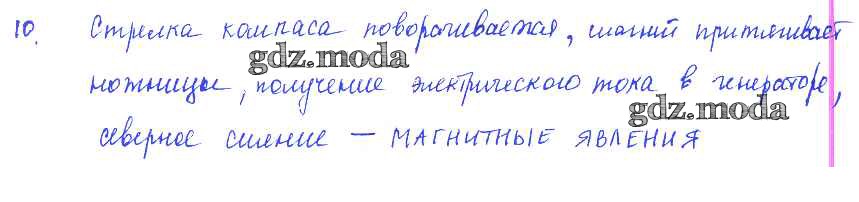 10. Стрелка компаса поворачивается, магний притягивает
gdz.moda
ножницы, получение электрического тока в генераторе,
gdz.moda
северное сияние — МАГНИТНЫЕ ЯВЛЕНИЯ